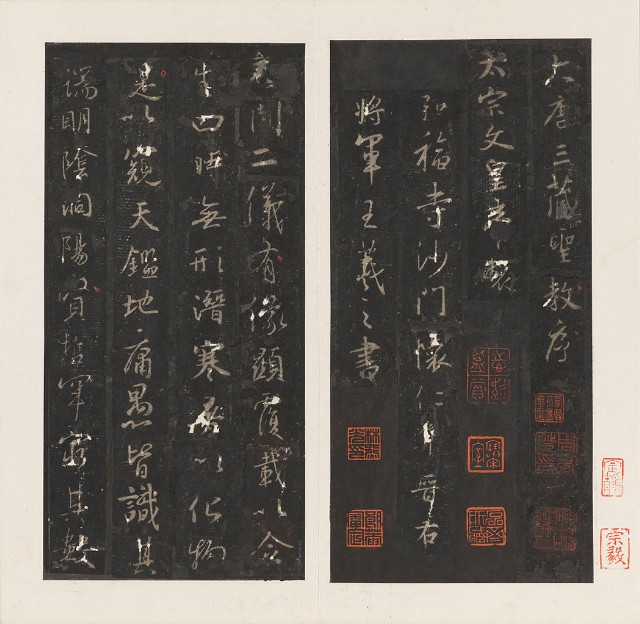 大唐三藏聖教序
太宗文皇帝製
弘福寺沙門懷仁集晉右
將軍王羲之書
蓋聞二儀有像顯覆載以含
生四時無形潛寒暑以化物
是以窺天鑑地庸愚皆識其
端明陰洞陽賢哲罕窮其數
宗毅